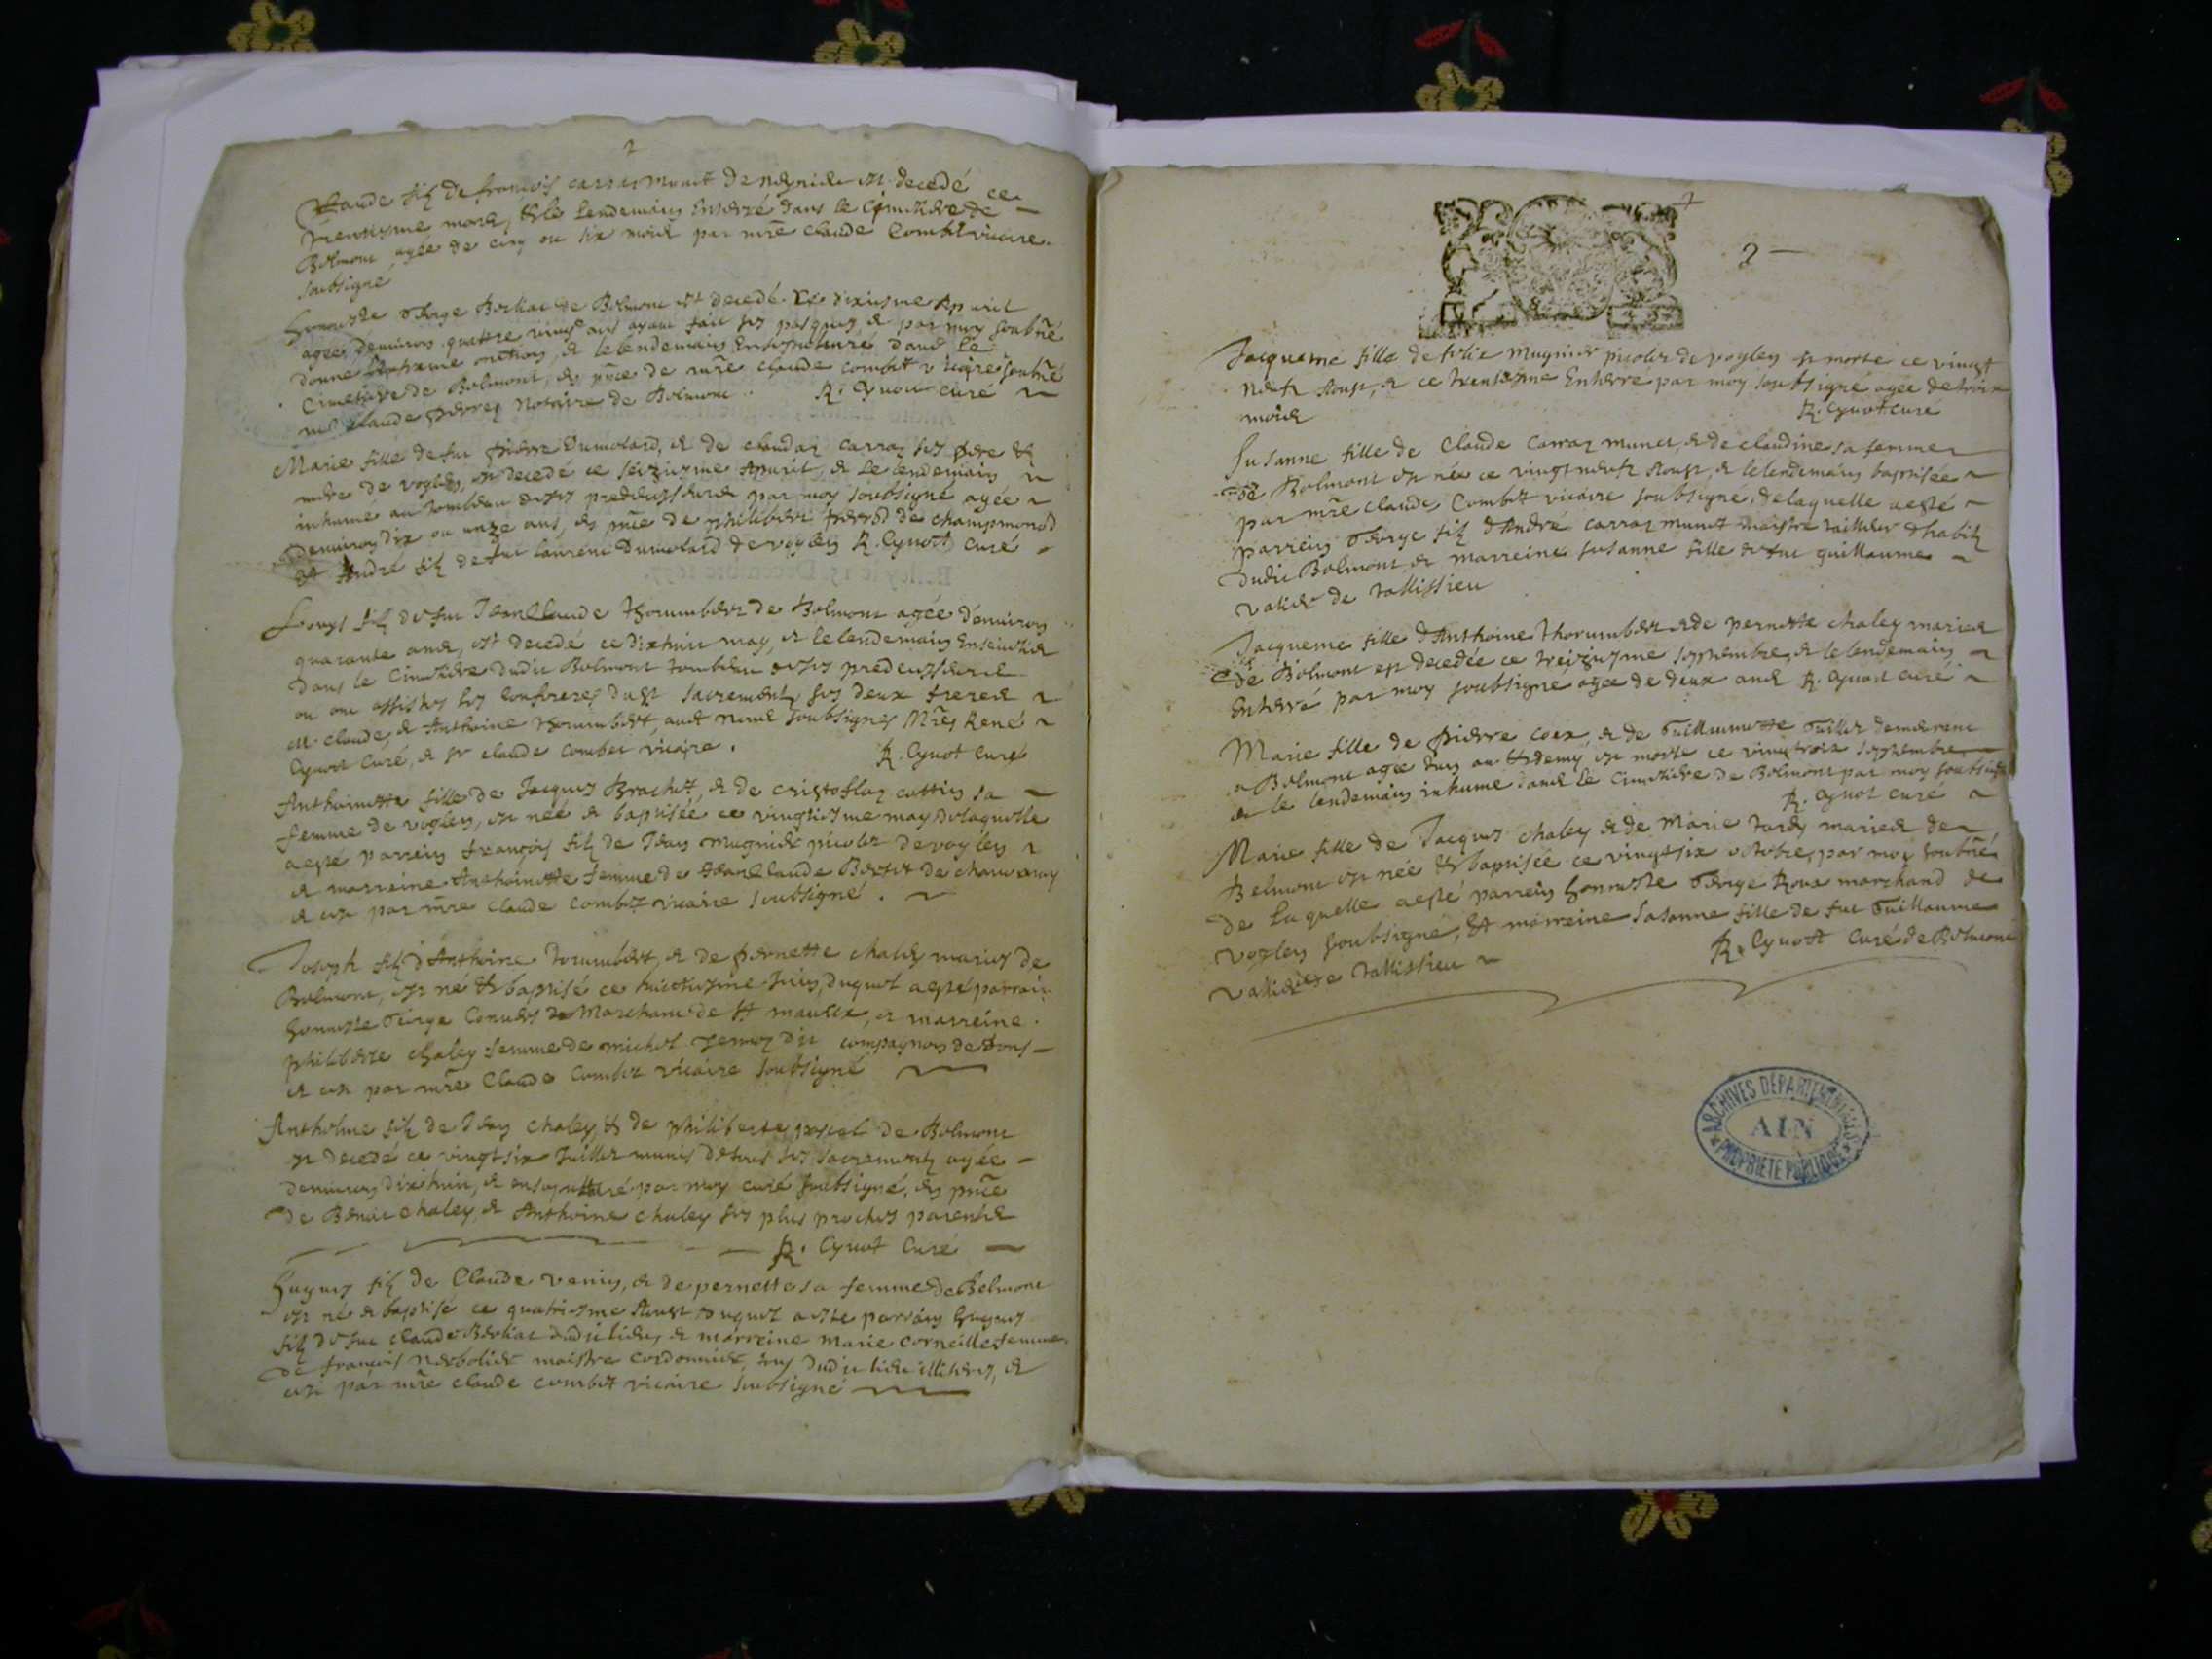 Claude filz de françois carraz munet de est decedé ce
mars, et le lendemain Enterré dans le Cimetiere de
Belmont agée de cinq ou six mois par mre Claude Combet vicaire
soubsigné
honneste George Berliat de Belmont est decedé ce dixiesme Apvril
agée denviron quattre vingt ans ayant fait ses pasques, et par moy soubné
donné lextreme onction, et le lendemain Ensepulturé dans le
Cimetiere de Belmont, en pnce de mre claude combet vicaire soubné
me Claude Notaire de Belmont. R. Cynot curé
Marie fille de fut pierre Dumolard, et de claudaz carraz ses pere et
mere de voglen, est decedé ce seiziesme Apvril, et le lendemain
inhumé au tombeau de ses predecesseurs par moy soubsigné agée
denviron dix ou unze ans, en pnce de philibert de champmond
et André filz de fut laurent Dumolard de voglen R. Cynot curé
Louys filz de fut Jean Claude thorumbert de Belmont agée denviron
quarante ans, est decedé ce dixhuit may, et le lendemain
dans le Cimetiere dudit Belmont tombeau de ses predecesseurs
ou ont assistés ses Confreres du St sacrement ses deux freres
Mr claude, et Anthoine thorumbert, avec nous soubsignes Mres René
Cynot Curé, et Sr claude combet vicaire. R. Cynot Curé
Anthoinette fille de Jacques Brachet, et de cristoflaz cottin sa
femme de voglen, est née et baptisée ce vingtiesme may de laquelle
a esté parrein françois filz de Jean mugnier picolet de voglen
et marreine Anthoinette femme de Jean Claude de
et ce par mre claude combet vicaire soubsigné.
Joseph filz d'Anthoine torumbert, et de pernette chaley maries de
Belmont, est né et baptisé ce huictiesme Juin, duquel a esté parrain
honneste George Marchant de St maulix, et marreine
philiberte chaley femme de michel dit compagnon de
et ce par mre Claude Combet vicaire soubsigné
Anthelme filz de Jean chaley, et de philiberte pascal de Belmont
est decedé ce vingt six Juillet munis de tous ses sacrements agée
denviron dixhuit, et ensepulturé par moy curé soubsigné, en pnce
de Benoit chaley, et Anthoine chaley ses plus proches parents
R. Cynot Curé
hugues filz de Claude venin, et de pernette sa femme de Belmont
est né et baptisé ce quatriesme Aoust duquel a esté parrain hugues
filz de fut claude Berliat dudit lieu, et marreine Marie Corneille femme
de françois maistre cordonnier, dudit lieu, et
ce par mre claude combet vicaire soubsigné
2
Jacqueme fille de mugnier picolet de voglen est morte ce vingt
neufz Aoust, et ce trentiesme Enterré par moy soubsigné agée de trois
mois R. Cynot curé
Susanne fille de Claude Carraz munet, et de claudine sa femme
de Belmont est née ce vingt neufz Aoust, et le lendemain baptisée
par mre claude Combet vicaire soubsigné, de laquelle a esté
parrein George filz d'André carraz munet maistre tailleur d'habitz
dudit Belmont, et marreine susanne fille de fut guillaume
vallier de tallissieu
Jacqueme fille d'Anthoine thorumbert et de pernette chaley maries
de Belmont est decedée ce treiziesme septembre, et le lendemain
Enterré par moy soubsigné agée de deux ans R. Cynot curé
Marie fille de pierre coex, et de Guillaumette demeurant
a Belmont agée d'un an et demy est morte ce vingtrois septembre
et le lendemain inhumé dans le Cimetiere de Belmont par moy soubsigné
R. Cynot curé
Marie fille de Jacques chaley et de Marie tardy maries de
Belmont est née et baptisée ce vingtsix octobre par moy soubné
de laquelle a esté parrein honneste George Roux marchand de
voglen soubsigné, Et marreine Susanne fille de fut Guillaume
vallier de tallissieu R. Cynot Curé de Belmont
ARCHIVES DEPARTEMENTALES
AIN
PROPRIETE PUBLIQUE